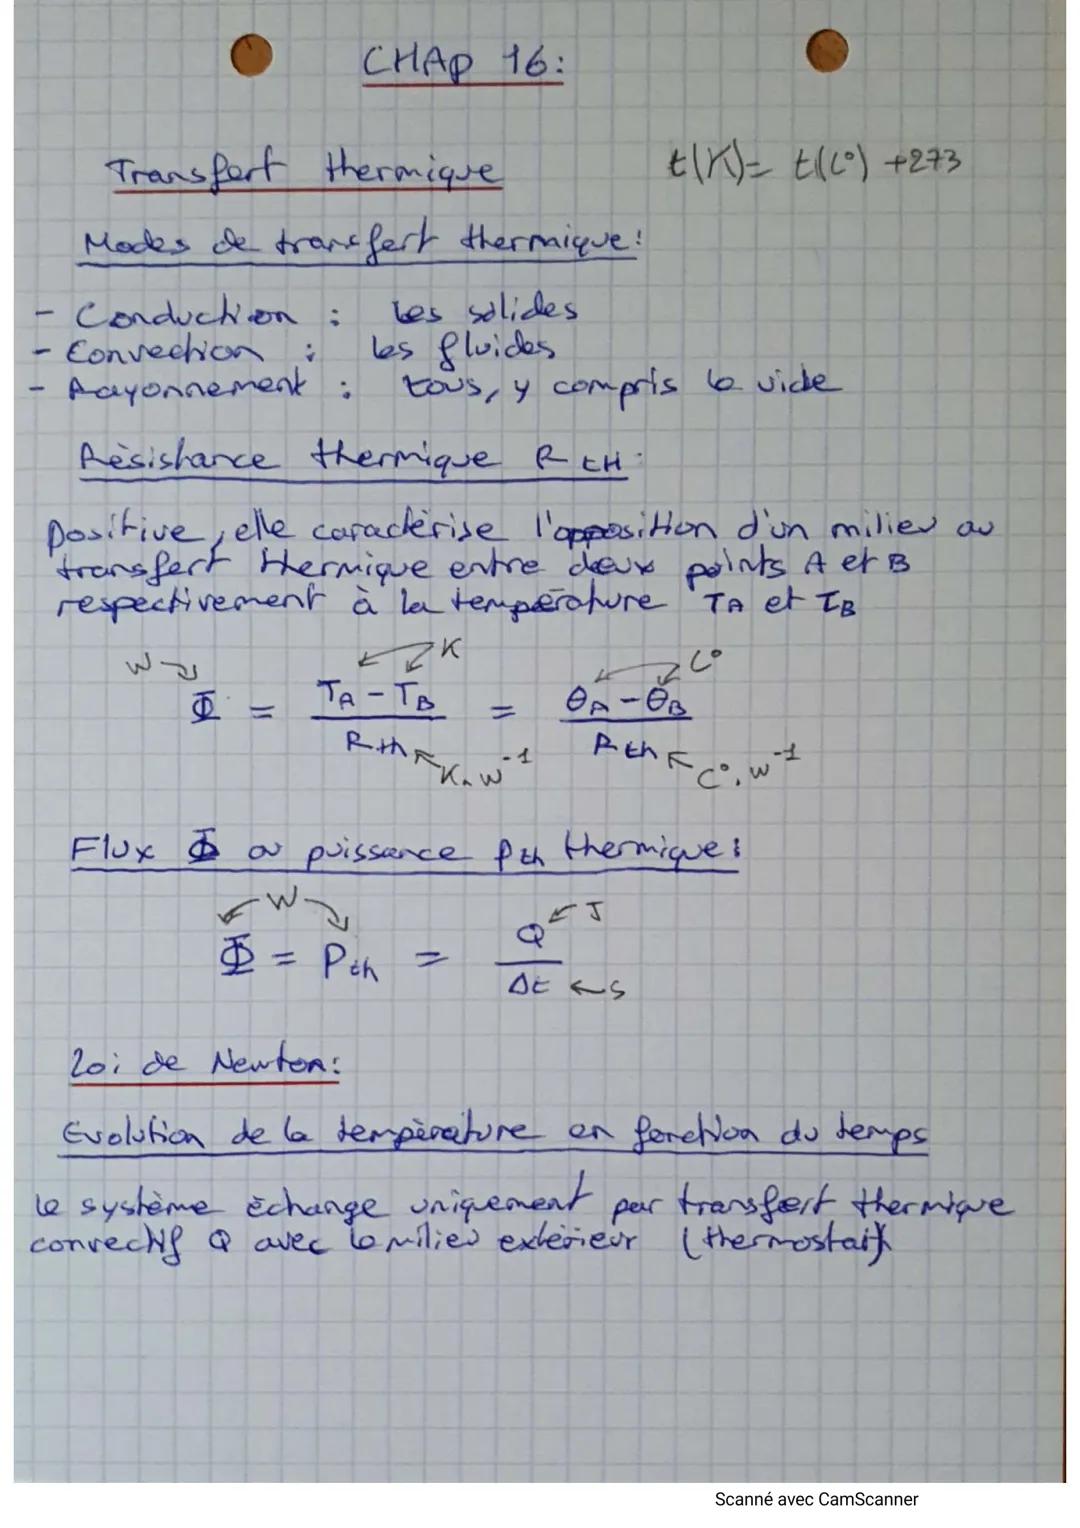 CHAP 16:
Transfert thermique
t(K)= t(C°) +273
Modes de transfert thermique:
- Conduction : Les solides
- Convection : les fluides
- Rayonnement : tous, y compris le vide
Résistance thermique R tH:
Positive, elle caractérise l'opposition d'un milieu au
transfert thermique entre deux points A et B
respectivement à la température TA et TB
W K C°
Φ = TA - TB / Rth = θA - θB / Rth
K.W⁻¹ C°.W⁻¹
Flux Φ ou puissance Pth thermique:
W J
Φ = Pth = Q / Δt
s
Loi de Newton:
Evolution de la température en fonction du temps
Le système échange uniquement par transfert thermique
convectif Q avec le milieu extérieur (thermostat)
Scanné avec CamScanner